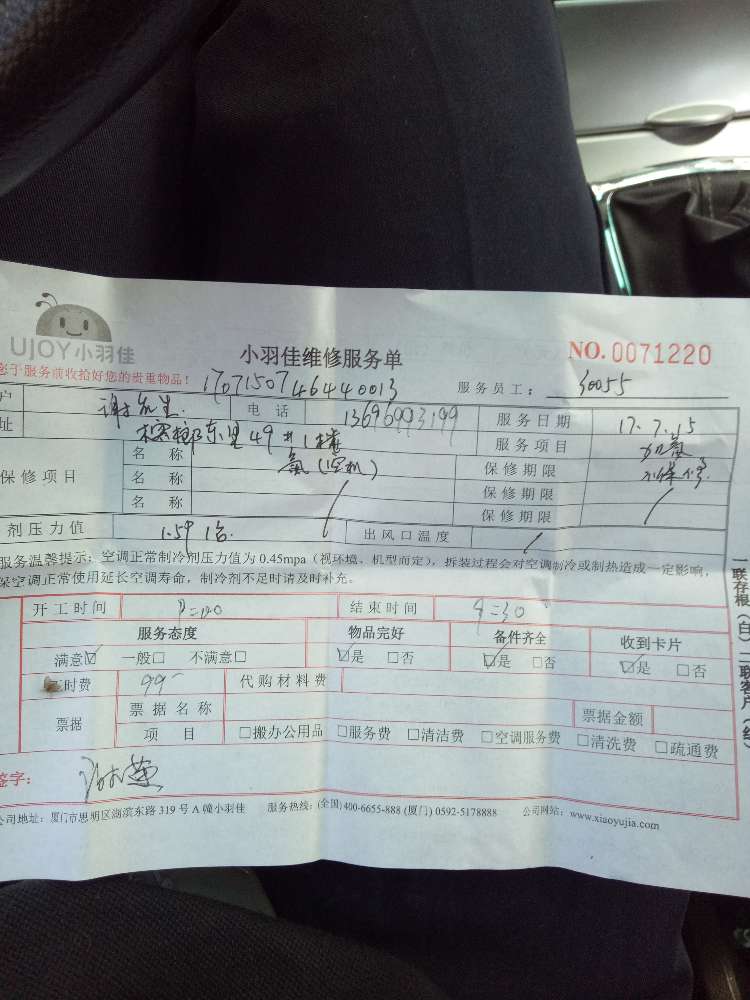 UJOY小羽佳
小羽佳维修服务单
NO.0071220
您于服务前收拾好您的贵重物品！
服务员工： 30055
户 谢先生 电 话 13696993199 服务日期 17.7.15
址 东里49 服务项目 加氟
保修项目 名 称 氟(空机) 保修期限
名 称 保修期限
名 称 保修期限
剂压力值 出风口温度
服务温馨提示：空调正常制冷剂压力值为0.45mpa（视环境、机型而定），拆装过程会对空调制冷或制热造成一定影响，
保空调正常使用延长空调寿命，制冷剂不足时请及时补充。
开工时间 结束时间 9=30
服务态度 物品完好 备件齐全 收到卡片
满意☑ 一般□ 不满意□ ☑是 □否 ☑是 □否 ☑是 □否
工时费 99 代购材料费
票据 票据名称 票据金额
项 目 □搬办公用品 □服务费 □清洁费 □空调服务费 □清洗费 □疏通费
签字：
公司地址：厦门市思明区湖滨东路319号A幢小羽佳 服务热线：(全国)400-6655-888 (厦门) 0592-5178888 公司网站：www.xiaoyujia.com
一联存根（白）二联客户（红）